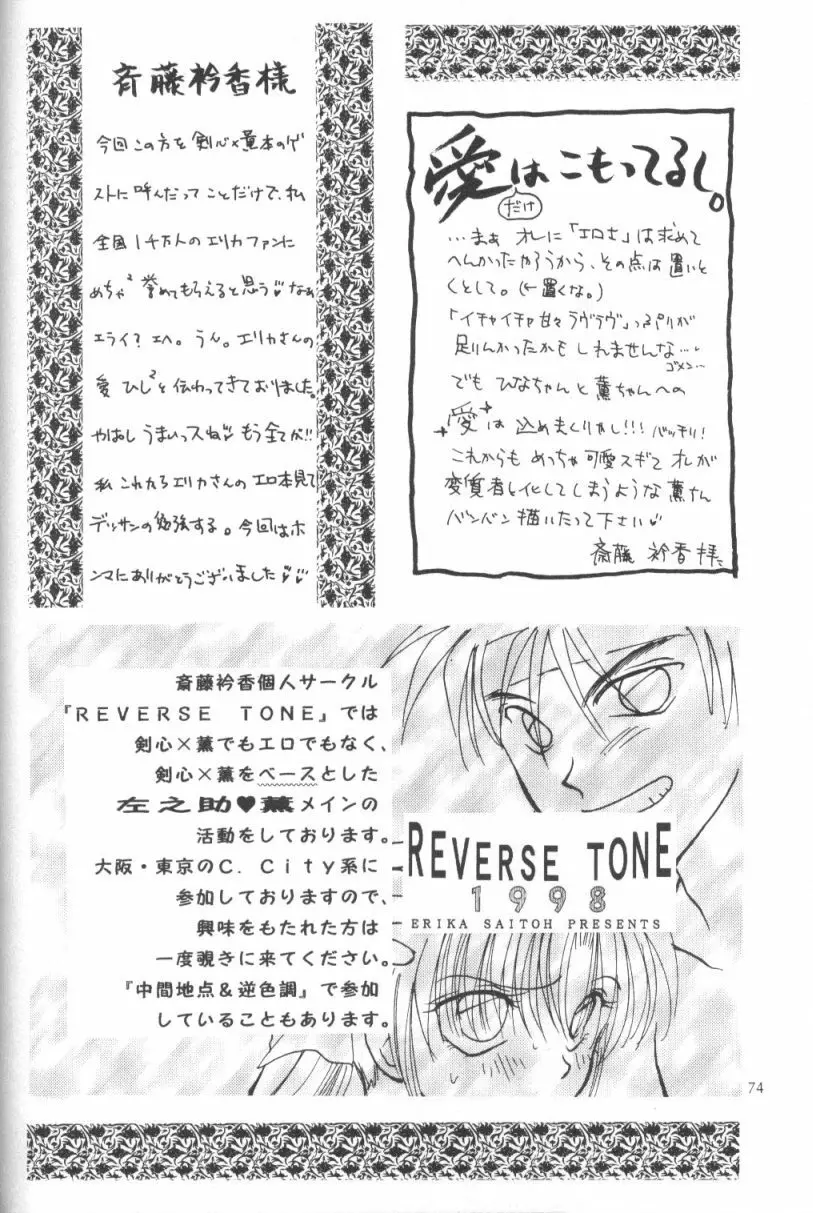 斉藤衿香様
今回この方を剣心×薫本のゲ
ストに呼んだってことだけで、私
全国1千万人のエリカファンに
めちゃ2誉めてもらえると思う♡なぁ
エライ?エへ。うん。エリカさんの
愛ひし2と伝わってきておりました。
やぱしうまいっスね♡もう全てが!!
私これからエリカさんのエロ本見て
デッサンの勉強する。今回はホ
ンマにありがとうございました♡♡
愛はこもってるし。
だけ
…まぁオレに「エロさ」は求めて
へんかったやろうから、その点は置いと
くとして。(←置くな。)
「イチャイチャ甘々ラヴラヴ」っぷりが
足りんかったかもしれませんな…
ゴメン…
でもひなちゃんと薫ちゃんへの
愛は込めまくりやし!!!バッチリ!
これからもめっちゃ可愛スギてオレが
変質者と化してしまうような薫さん
バンバン描いたって下さい♡
斎藤衿香拝
斎藤衿香個人サークル
『REVERSE TONE』では
剣心×薫でもエロでもなく、
剣心×薫をベースとした
左之助♥薫メインの
活動をしております。
大阪・東京のC. City系に
参加しておりますので、
興味をもたれた方は
一度覗きに来てください。
『中間地点&逆色調』で参加
していることもあります。
REVERSE TONE
1998
ERIKA SAITOH PRESENTS
74